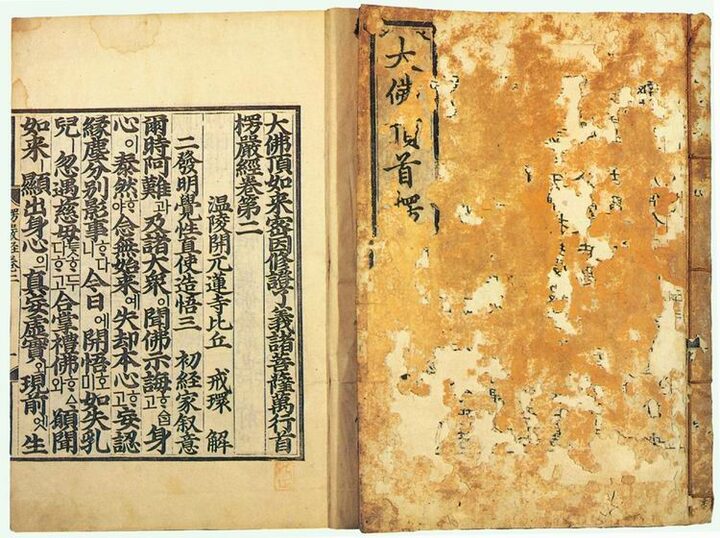 大佛頂首楞
大佛頂如來密因修證了義諸菩薩萬行首
楞嚴經卷第二
温陵開元蓮寺比丘 戒環 解
二發明覺性直使造悟三 初經家叙意
爾時阿難과及諸大衆이聞佛示誨ᄒᆞᅀᆞᆸ고身
心이泰然ᄒᆞ야念無始來예失却本心ᄒᆞ고妄認
緣塵分別影事ᄒᆞ다니今日에開悟호미如失乳
兒忽遇慈母ᄐᆞᆺᄒᆞ두다ᄒᆞ고合掌禮佛ᄒᆞᅀᆞ와願聞
如來顯出身心의真妄虛實와現前에生